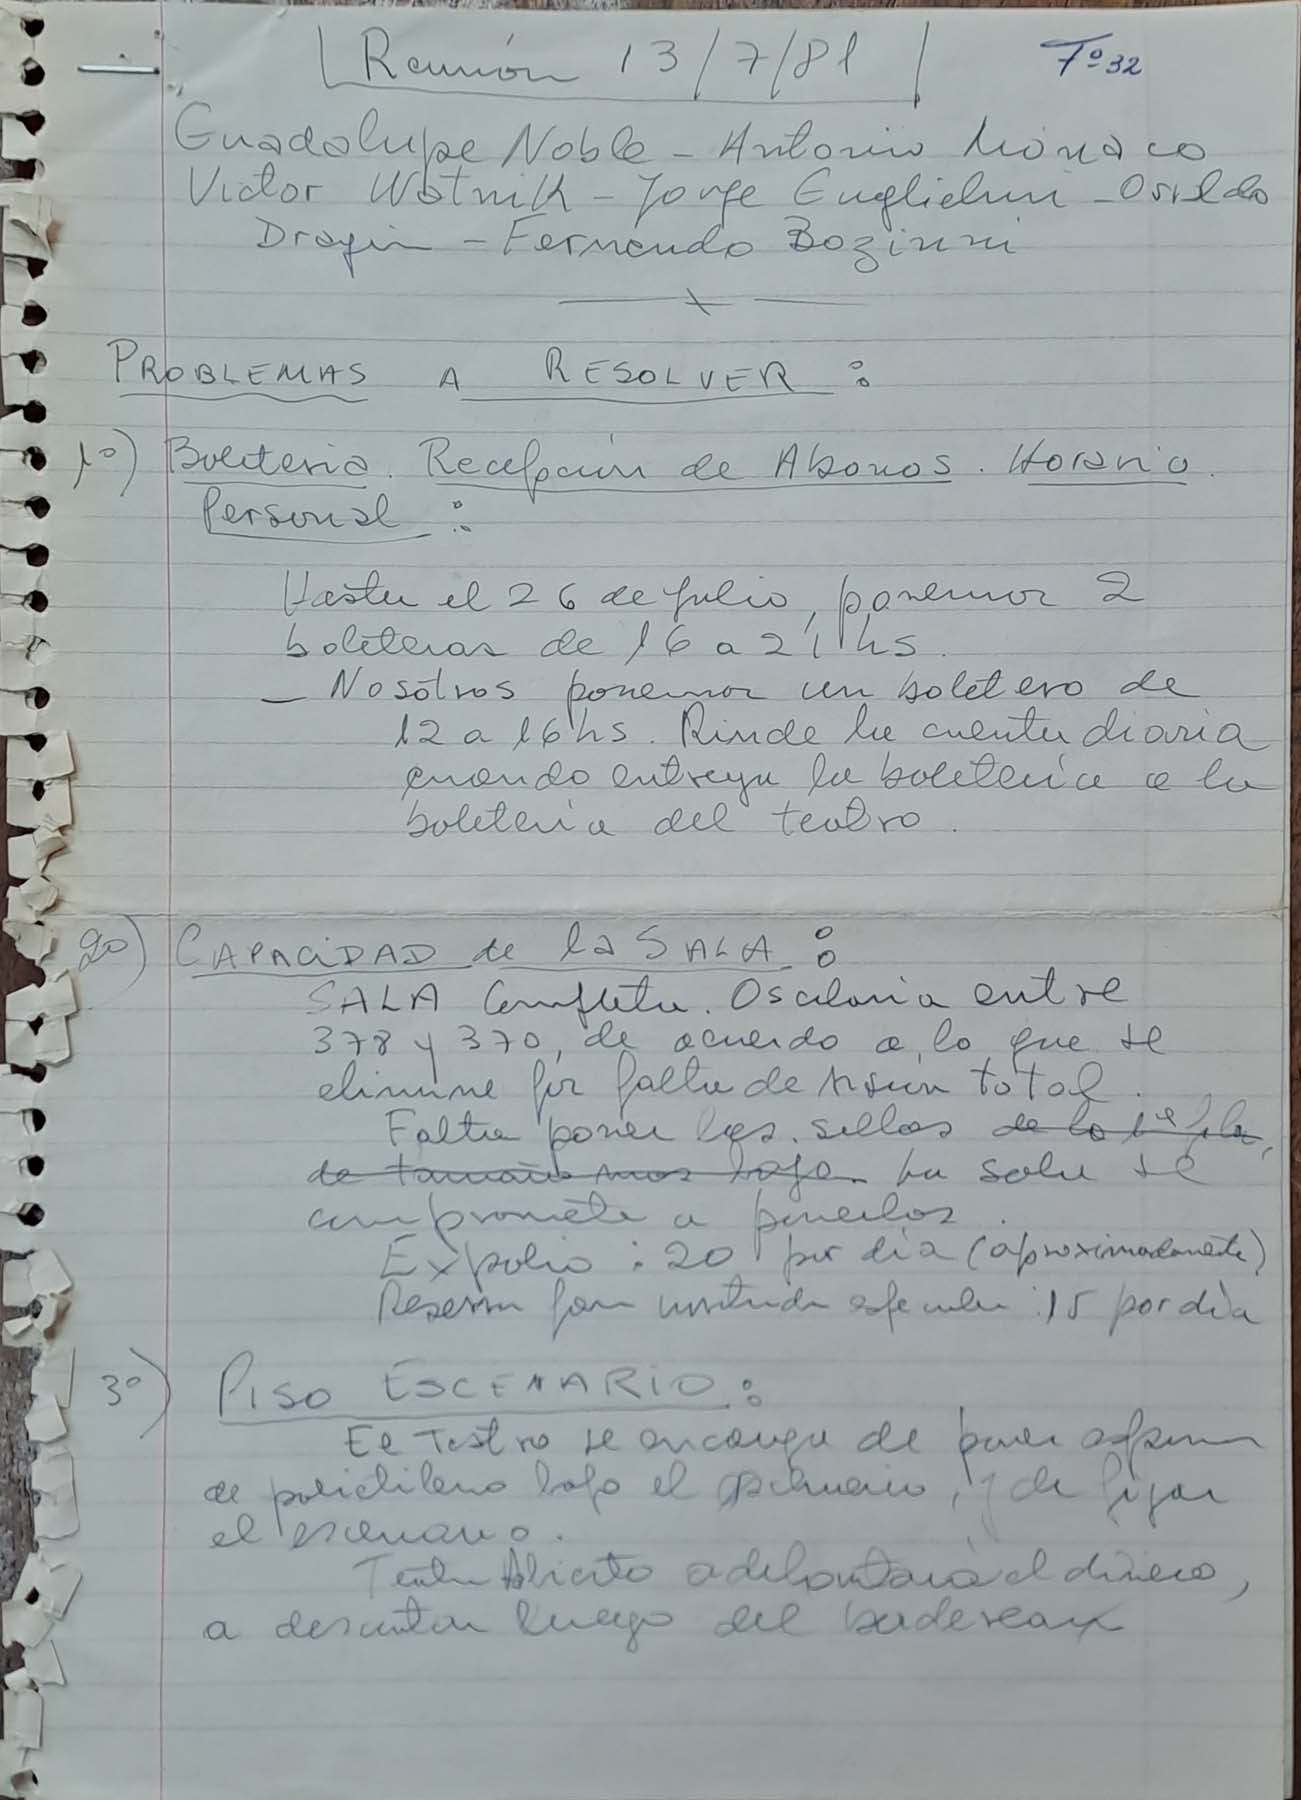 Reunión 13/7/81
Fº 32
Guadalupe Noble - Antonio Mónaco
Victor Watnik - Jorge - Osvaldo
Dragún - Fernando Bozinni
PROBLEMAS A RESOLVER:
1º) Boletería. Recepción de Abonos. Horario.
Personal:
Hasta el 26 de julio, ponemos 2
boleteras de 16 a 21 hs.
- Nosotros ponemos un boletero de
12 a 16 hs. Rinde la cuenta diaria
cuando entrega la boletería a la
boletería del teatro.
2º) CAPACIDAD de la SALA:
SALA Completa. Oscilaría entre
378 y 370, de acuerdo a lo que se
elimine por falta de visión total.
Falta poner las sillas de la 1ª fila,
de tamaño mas bajo. La sala se
compromete a ponerlas.
Expolio: 20 por día (aproximadamente)
Reserva para : 15 por día
3º) PISO ESCENARIO:
El Teatro se encarga de poner
de bajo el escenario, y de fijar
el escenario.
Teatro Abierto adelantará el dinero,
a descontar luego del bordereaux